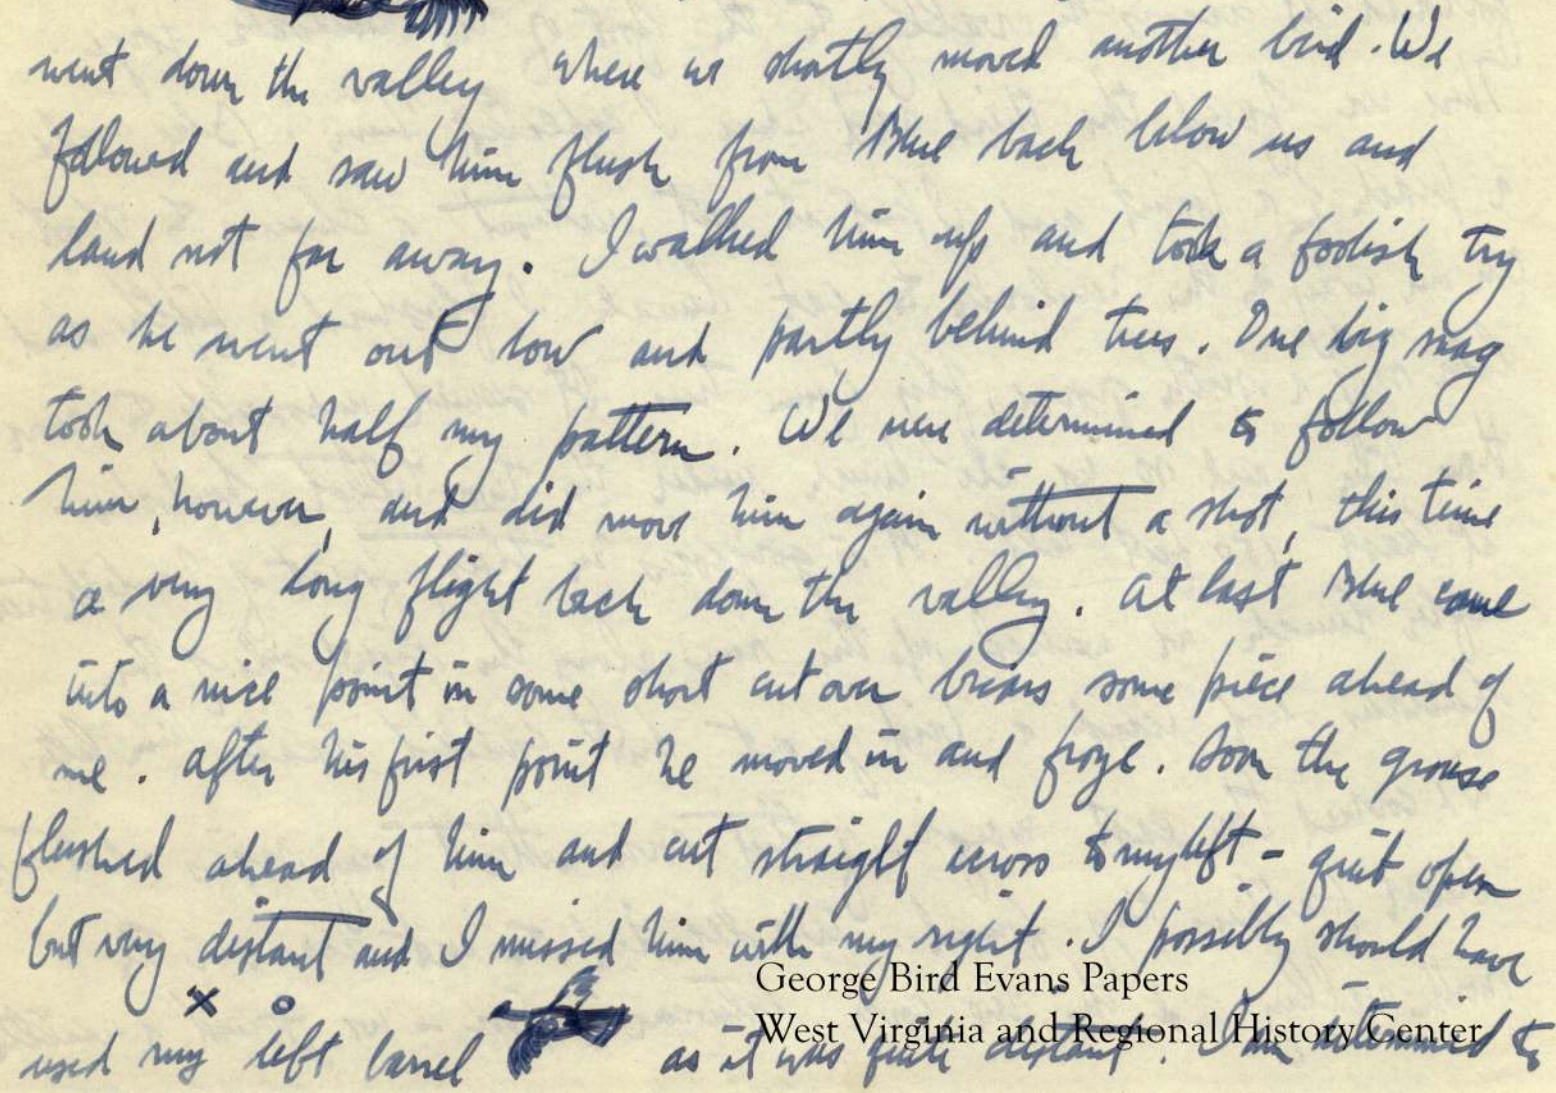 went down the valley where we shortly moved another bird. We
followed and saw him flush from Blue back below us and
land not far away. I walked him up and took a foolish try
as he went out low and partly behind trees. One big snag
took about half my pattern. We were determined to follow
him, however, and did move him again without a shot, this time
a very long flight back down the valley. At last Blue came
into a nice point in some short cut over briars some piece ahead of
me. After his first point he moved in and froze. Soon the grouse
flushed ahead of him and cut straight across to my left - quite open
but very distant and I missed him with my right. I possibly should have
George Bird Evans Papers
x o
used my left barrel - as it was quite distant. I am determined to
West Virginia and Regional History Center